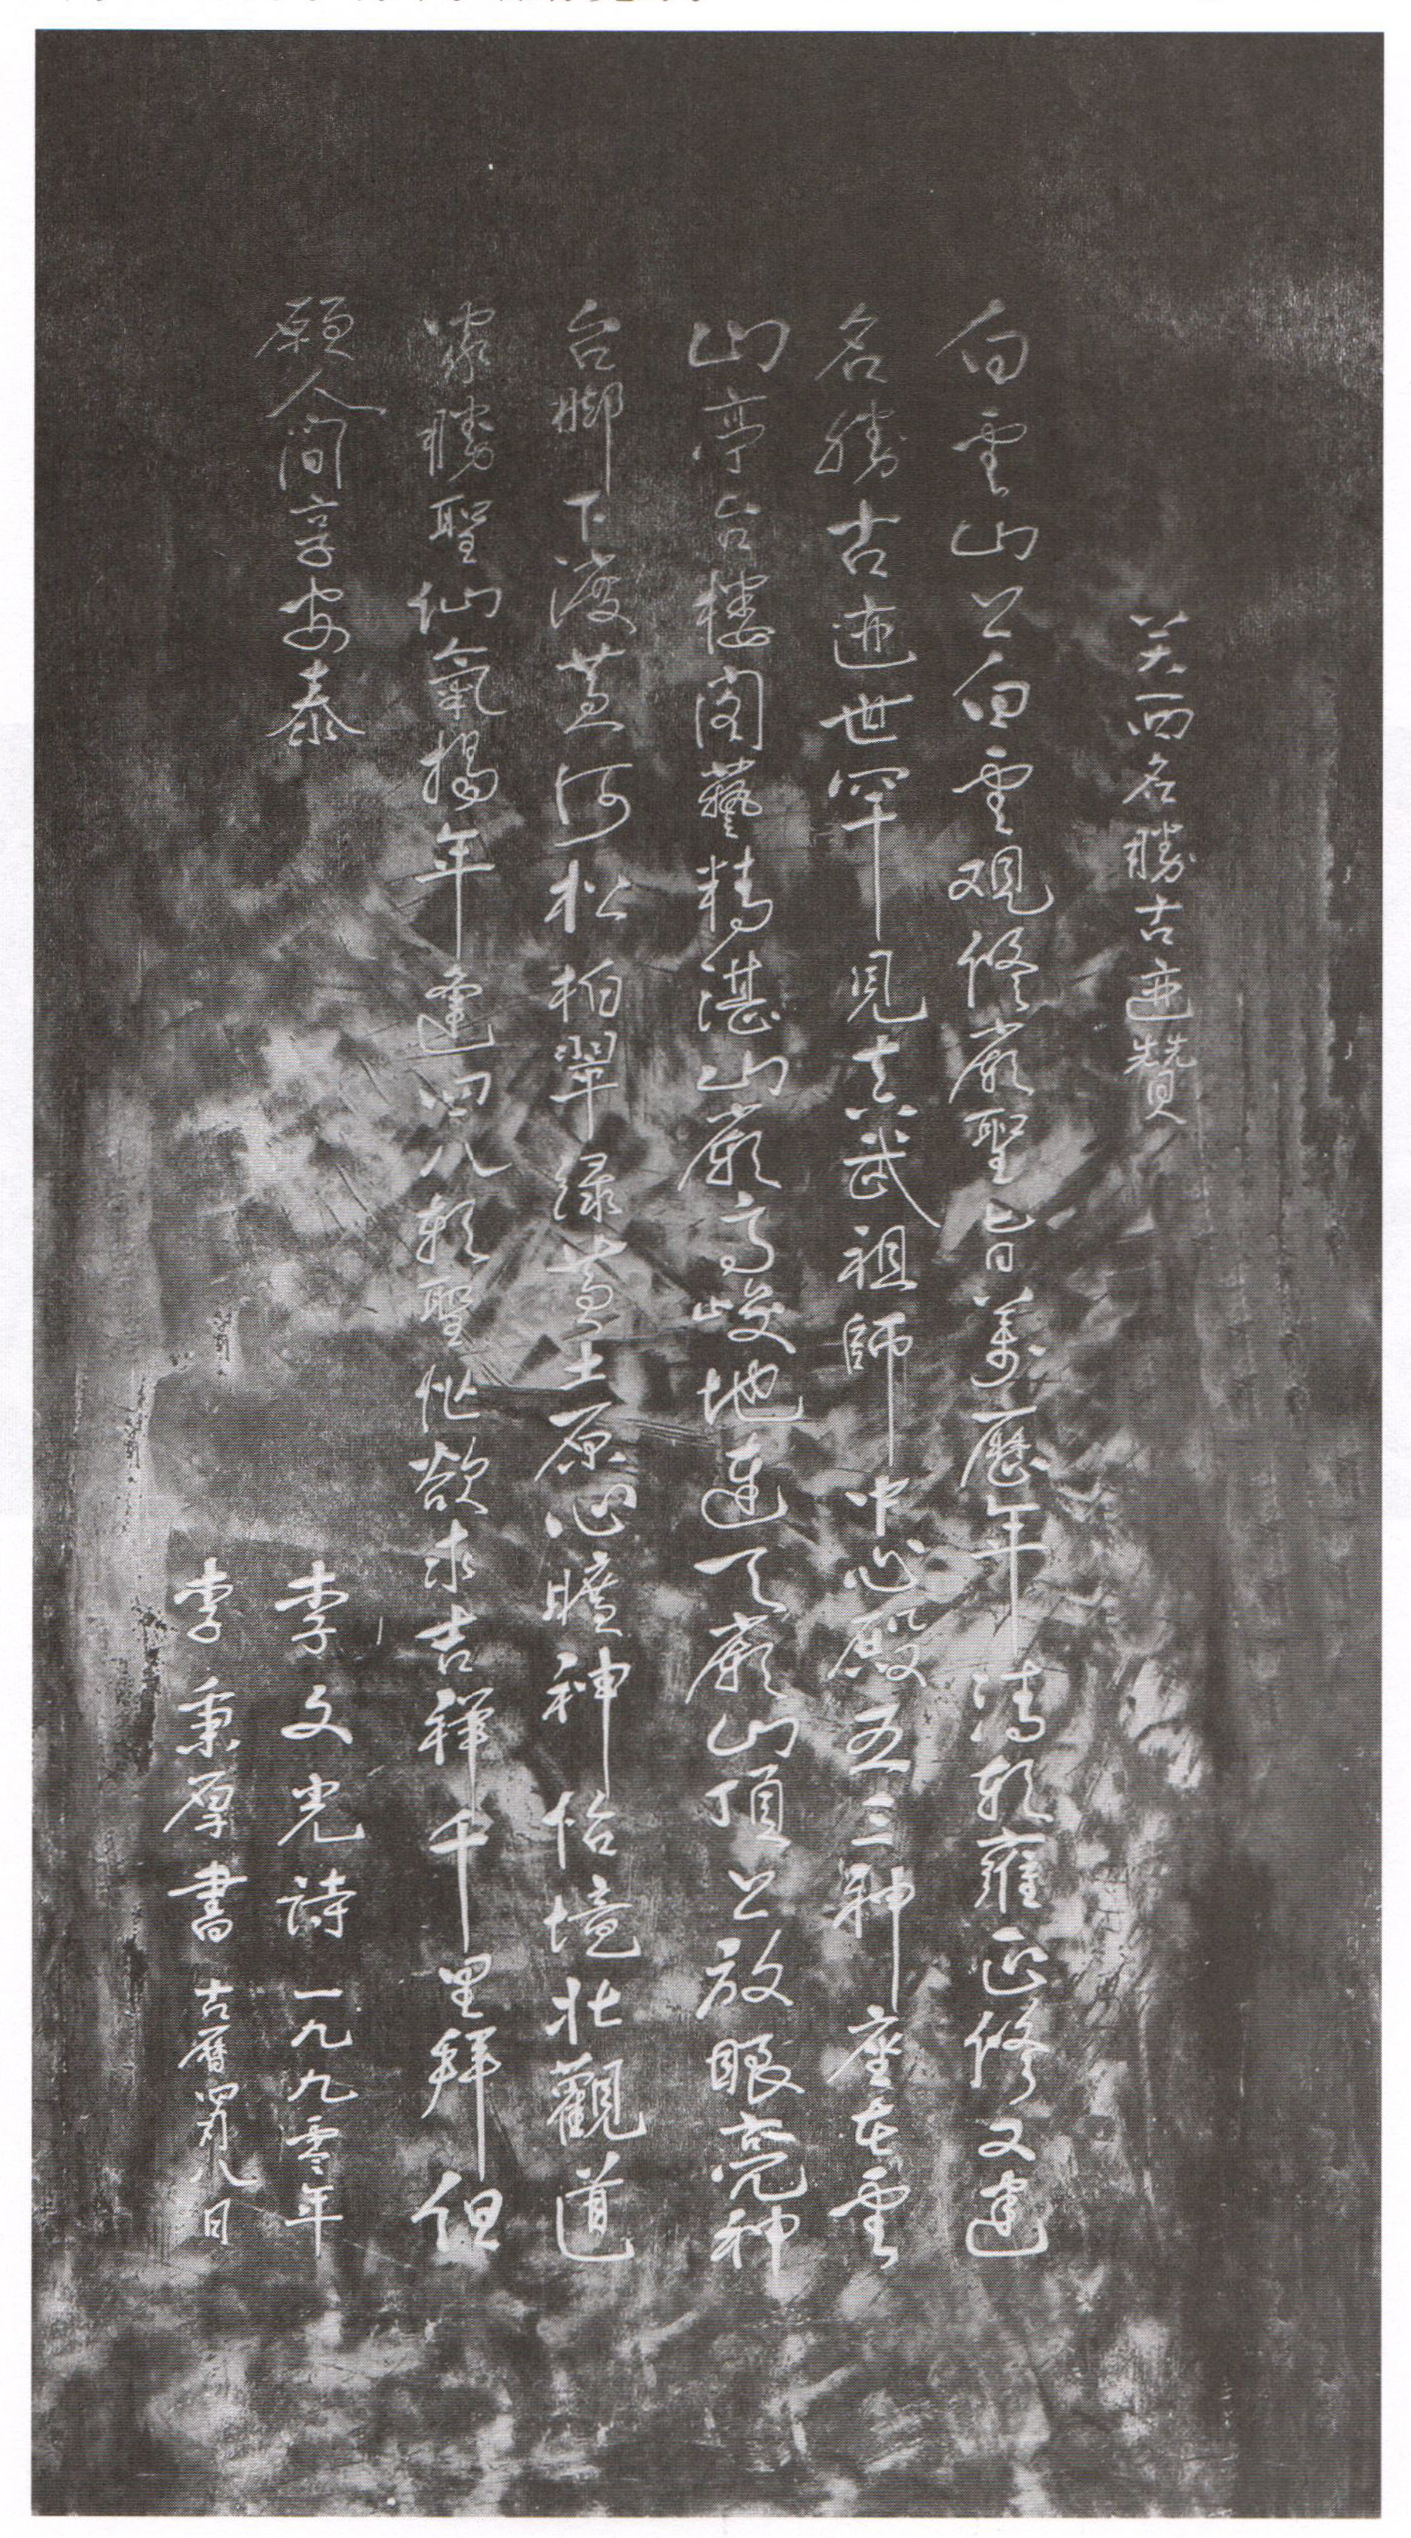 关西名勝古迹赞
白雲山上白雲观修廟聖旨萬曆年清朝雍正修又建
名勝古迹世罕見真武祖師中心殿五三神座在雲
山亭台楼阁藝精湛山廟高峻地连天廟山顶上放眼亮神
台脚下渡黄河松柏翠绿黄土原心曠神怡境壮觀道
家勝聖仙氣揚年逢四八朝聖忙欲求吉祥千里拜但
願人间享安泰
李文光詩一九九零年
李秉厚書古曆四月八日